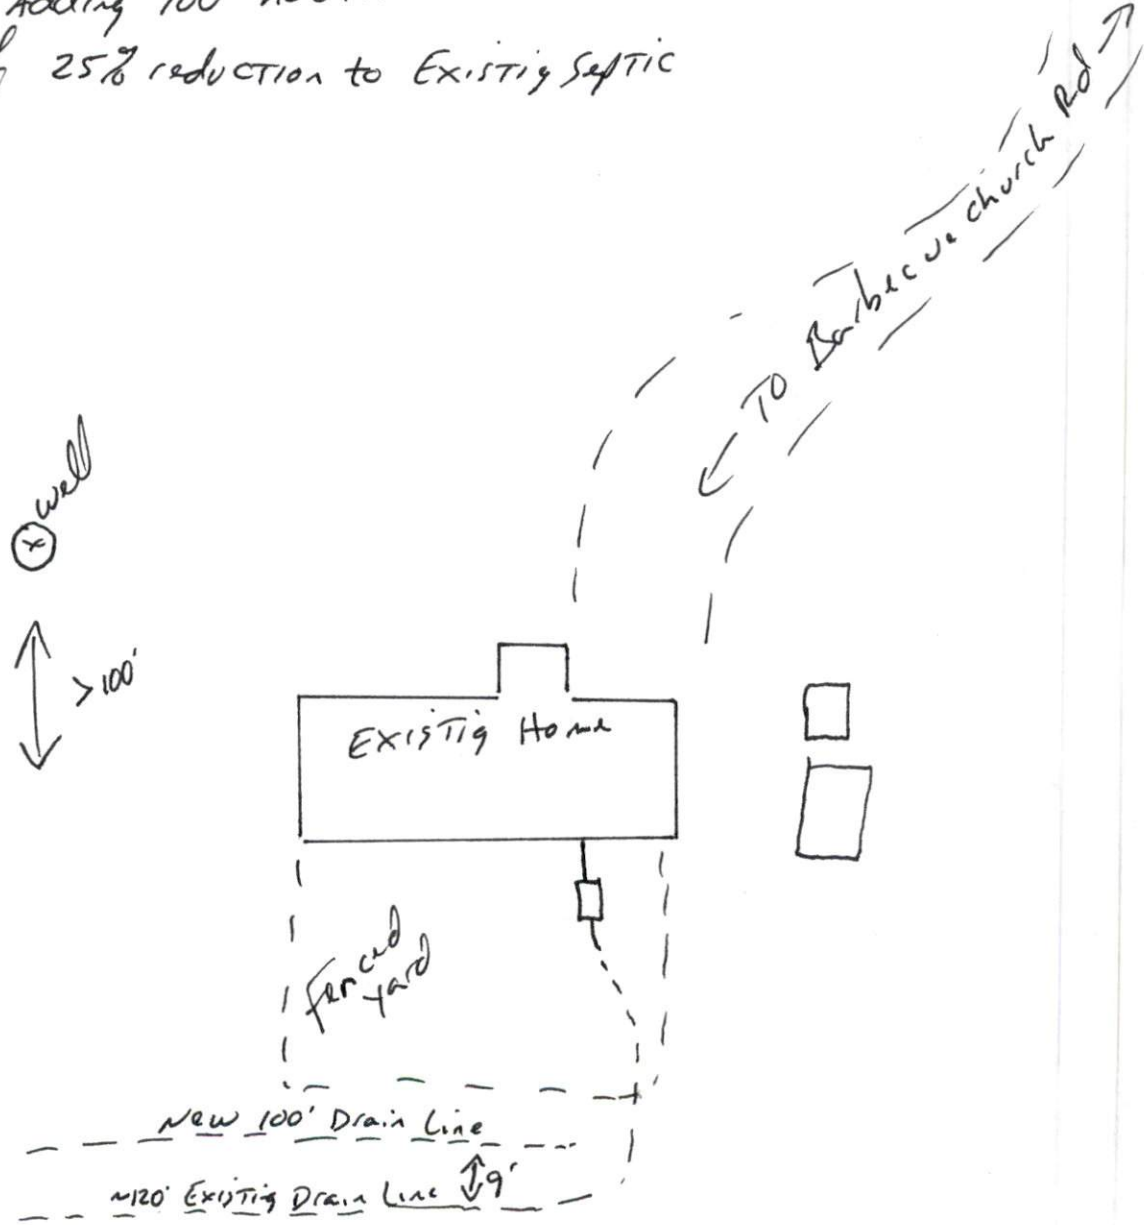 Adding 100'
25% reduction to Existig Septic
To Barbecue church Rd
well
>100'
Existig Home
Fenced
yard
New 100' Drain Line
9'
~120' Existig Drain Line